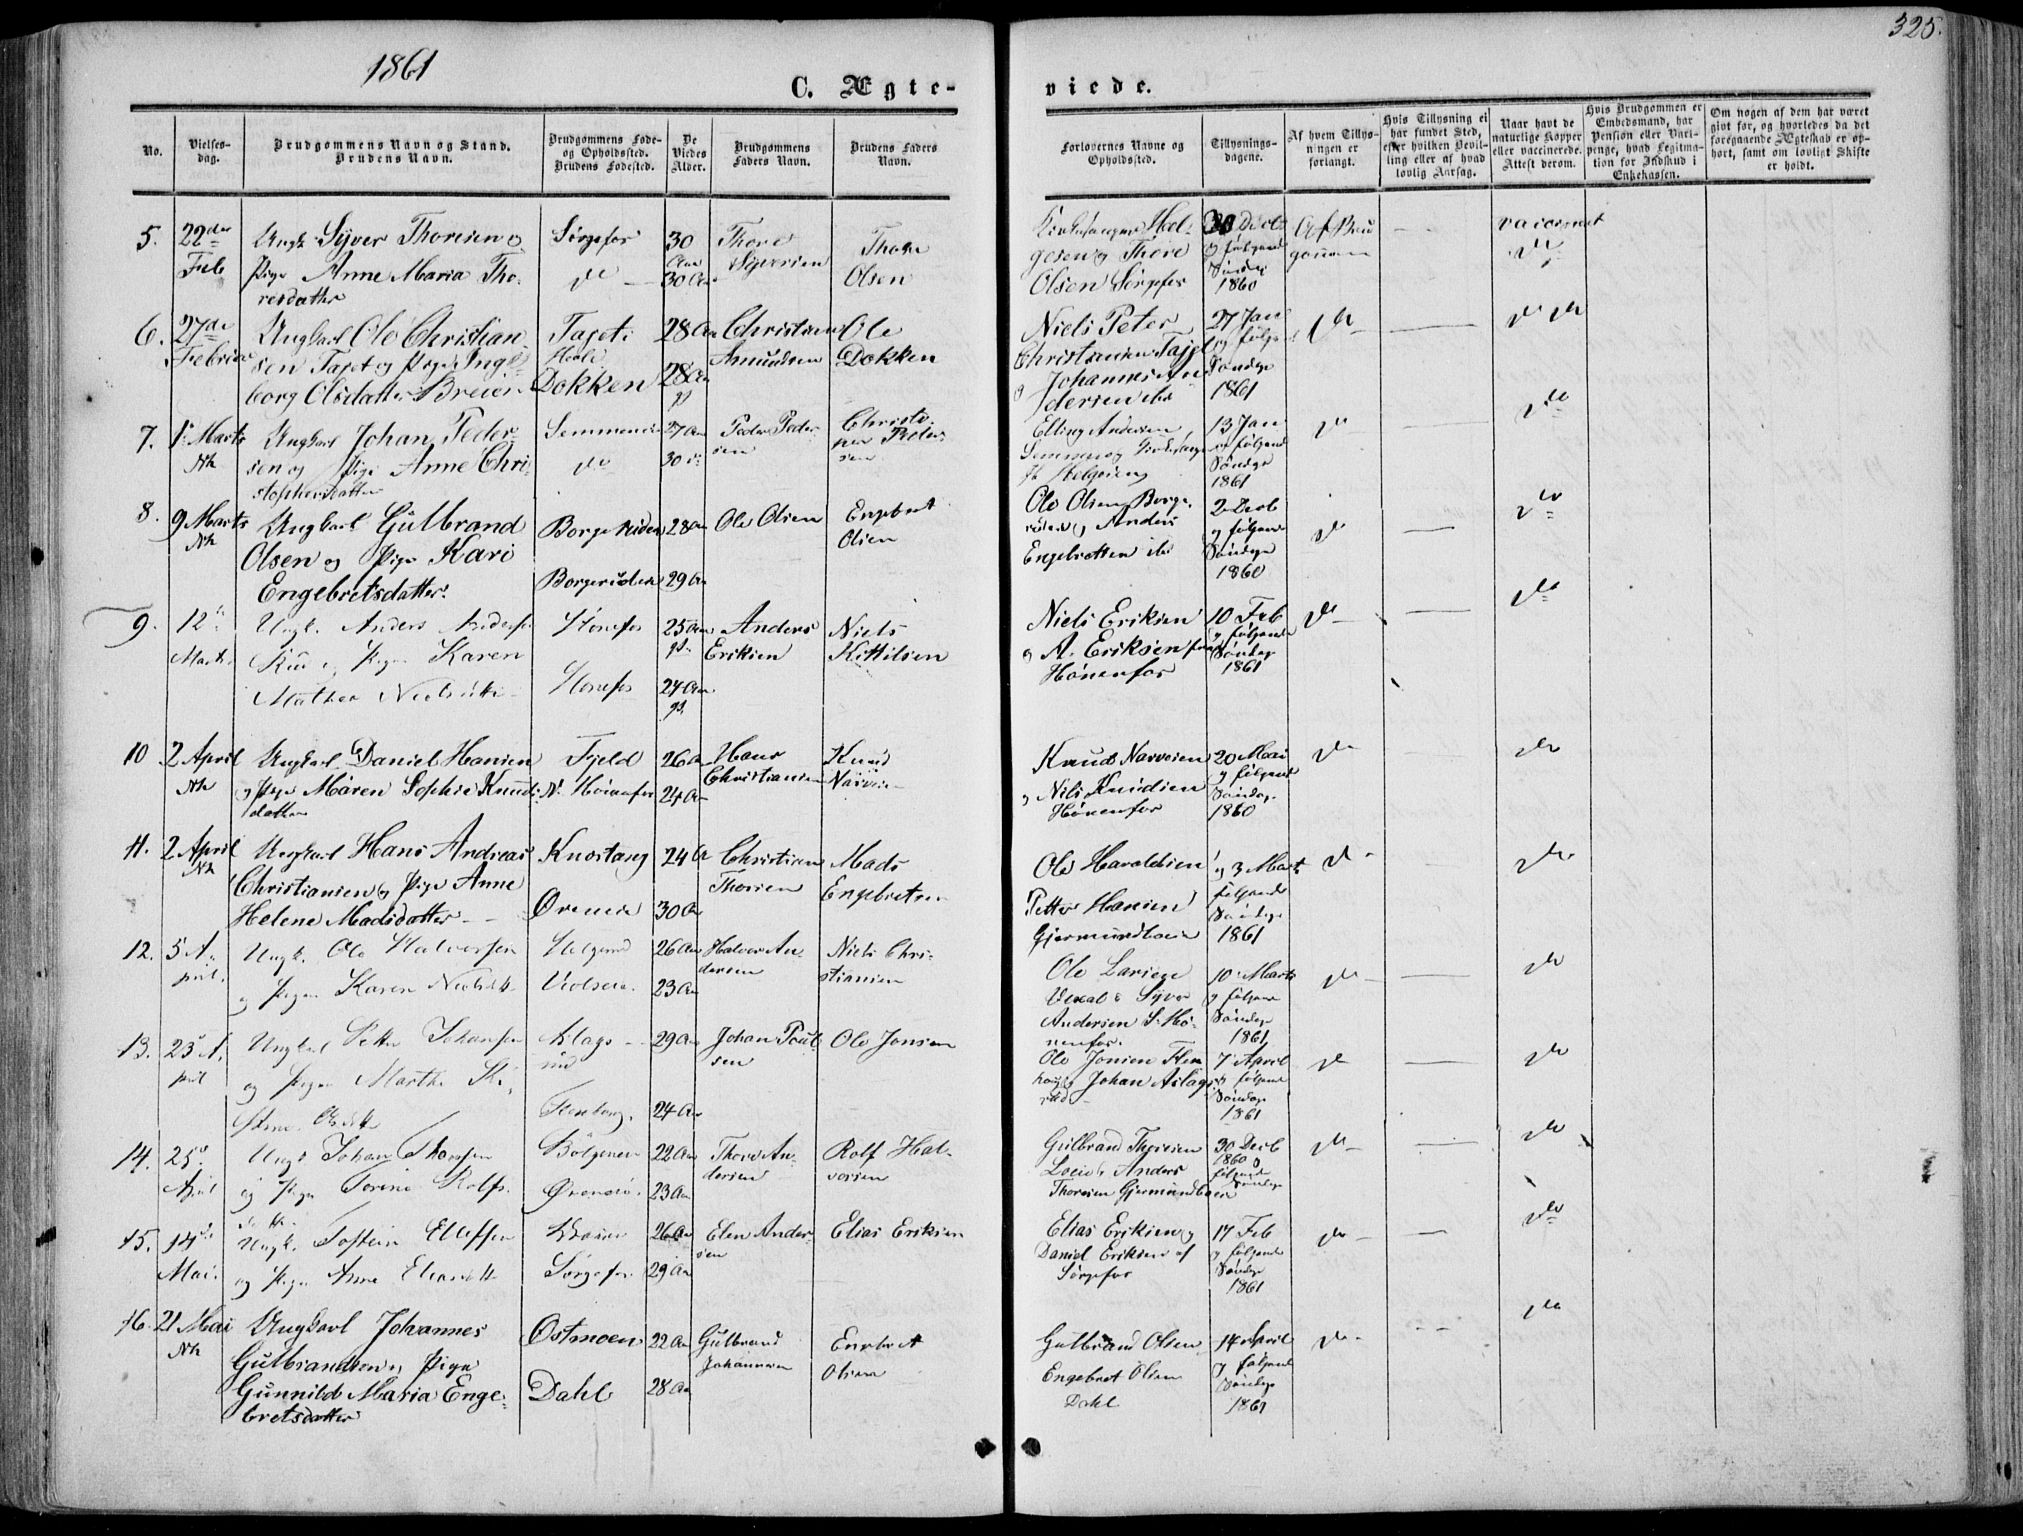 1861
325.
C. Ægte-
viede.
No.
Vielses-
dag.
Brudgommens Navn og Stand.
Brudens Navn.
Brudgommens Føde-
og Opholdssted.
Brudens Fødested.
De
Viedes
Alder.
Brudgommens
Faders Navn.
Brudens Faders
Navn.
Forlovernes Navne og
Opholdssted.
Tillysnings-
dagene.
Af hvem Tillys-
ningen er
forlangt.
Hvis Tillysning ei
har fundet Sted,
efter hvilken Bevil-
ling eller af hvad
lovlig Aarsag.
Naar havt de
naturlige Kopper
eller vaccinerede.
Attest derom.
Hvis Brudgommen er
Embedsmand, har
Pension eller Vart-
penge, hvad Legitima-
tion for Indskud i
Enkekassen.
Om nogen af dem har været
givt før, og hvorledes da det
foregaaende Ægteskab er op-
hørt, samt om lovligt Skifte
er holdt.
5. 22de Feb
Ungk Syver Thoresen og
Pige Anne Maria Tho-
resdatter
Sørgefos
do
30 Aar
30 Aar
Thore
Syversen
Thore
Olsen
Kirkesanger Hel-
gesen og Thore
Olsen Sørgefos
30 Decb
og følgende
Søndage
1860
Af Brud
gommen
vaccineret
do
6. 27de Februar
Ungkarl Ole Christian-
sen Tajet og Pige Inge-
borg Olsdatter Breien
Tajet i
Hole
Dokken
28 Aar
28 Aar
Christian
Amundsen
Ole
Dokken
Niels Peter
Christiansen Tajet
og Johannes An
dersen ibd
27 Jan
og følge
Søndage
1861
do
do do
7. 1 Marts
Nk
Ungkarl Johan Peder-
sen og Pige Anne Chri-
stophersdatter
Semmen
do
27 Aar
30 do
Peder Peder
sen
Christo
pher Peter
sen
Elling Andersen
Semmen og Kirkesanger
Helgesen
13 Jan
og følgende
Søndage
1861
do
do
8. 9 Marts
Nk
Ungkarl Gulbrand
Olsen og Pige Kari
Engebretsdatter.
Borgeruden
Borgeruden
28 Aar
29 Aar
Ole Olsen
Engebret
Olsen
Ole Olsen Borge-
ruden og Anders
Engebretsen ibd
2 Decb
og følgende
Søndage
1860
do
do
9. 12
Marts
Ungk. Anders Andersen
Rud og Pige Karen
Mathea Nielsdtr
Hønefos
Hønefos
25 Aar
24 Aar
Anders
Eriksen
Niels
Kittilsen
Niels Eriksen
og A. Eriksen
Hønenfos
10 Feb
og følgende
Søndage
1861
do
do
10 2 April
Nk
Ungkarl Daniel Hansen
og Pige Maren Sophie Knuds-
datter
Fjeld
N. Hønenfos
26 Aar
24 Aar
Hans
Christiansen
Knud
Narvesen
Knud Narvesen
og Nils Knudsen
Hønenfos
20 Mai
og følgende
Søndage
1860
do
do
11. 2 April
Nk
Ungkarl Hans Andreas
Christiansen og Pige Anne
Helene Madsdatter
Knostang
Øveneie
24 Aar
30 Aar
Christian
Thorsen
Mads
Engebretsen
Ole Haraldsen
Petter Hansen
Gjermundboeie
3 Marts
følgende
Søndage
1861
do
do
12. 5 A-
pril.
Ungk. Ole Halvorsen
og Pigen Karen Nielsdtr
Helgerud
Veolseie
26 Aar
23 Aar
Halvor An-
dersen
Niels Chri-
stiansen
Ole
Syver
Andersen S. Hø-
nenfos.
10 Marts
og følgende
Søndage
1861
do
do
13. 23 A-
pril
Ungkarl Peter Johansen
og Pigen Marthe Ki-
stine Olsdtr
Aslags-
rud
Flenberg.
29 Aar
24 Aar
Johan Poul-
sen
Ole Jonsen
Ole Jonsen
Johan Aslags-
rud
7 April
og følgende
Søndage
1861
do
do
14. 25
April
Ungk Johan Thoresen
og Pigen Torine Rolfs-
datter
Bølgenen
Øveneie
22 Aar
23 Aar
Thore An-
dersen
Rolf Hal-
vorsen
Gulbrand Thoresen
Loeie og Anders
Thoresen Gjermundboeie
30 Decb
1860 og
følgende
Søndage
do
do
15. 14
Mai.
Ungk. Tostein Ellefsen
og Pigen Anne Eliasdtr
Braaen
Sørgefos
26 Aar
29 Aar
Elen Ander-
sen
Elias Eriksen
Elias Eriksen og
Daniel Eriksen af
Sørgefos
17 Feb
og følgende
Søndage
1861
do
do
16. 21 Mai
Nk
Ungkarl Johannes
Gulbrandsen og Pige
Gunnild Maria Enge-
bretsdatter
Ostmoen
Dahl
22 Aar
28 Aar
Gulbrand
Johannesen
Engebret
Olsen
Gulbrand Olsen
Engebret Olsen
Dahl
14 April
og følgende
Søndage
1861
do
do